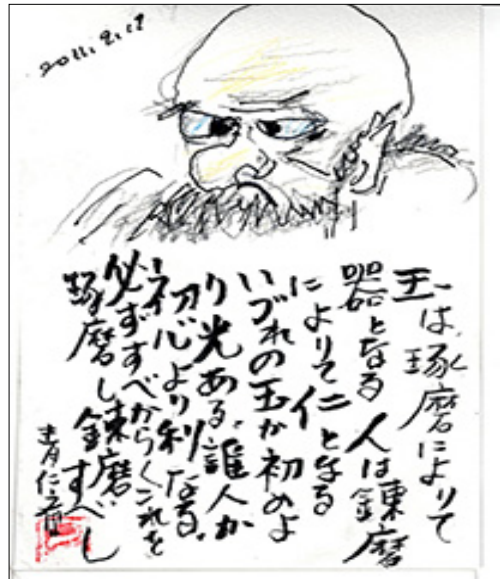 玉は、琢磨によりて
器となる 人は錬磨
によりて仁となる
いづれの玉か初めよ
り光ある、誰人か
初心より利なる、
必ずすべからくこれを
琢磨し錬磨すべし